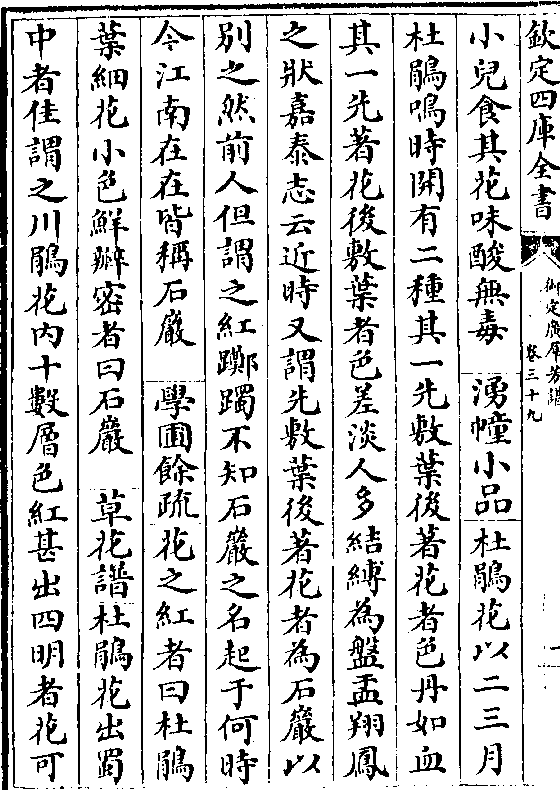 欽定四庫全書
御定廣羣芳譜
卷三十九
小兒食其花味酸無毒 湧幢小品 杜鵑花以二三月
杜鵑鳴時開有二種其一先敷葉後著花者色丹如血
其一先著花後敷葉者色差淡人多結縛為盤盂翔鳳
之狀嘉泰志云近時又謂先敷葉後著花者為石巖以
別之然前人但謂之紅躑躅不知石巖之名起于何時
今江南在在皆稱石巖 學圃餘疏 花之紅者曰杜鵑
葉細花小色鮮瓣密者曰石巖 草花譜 杜鵑花出蜀
中者佳謂之川鵑花内十數層色紅甚出四明者花可